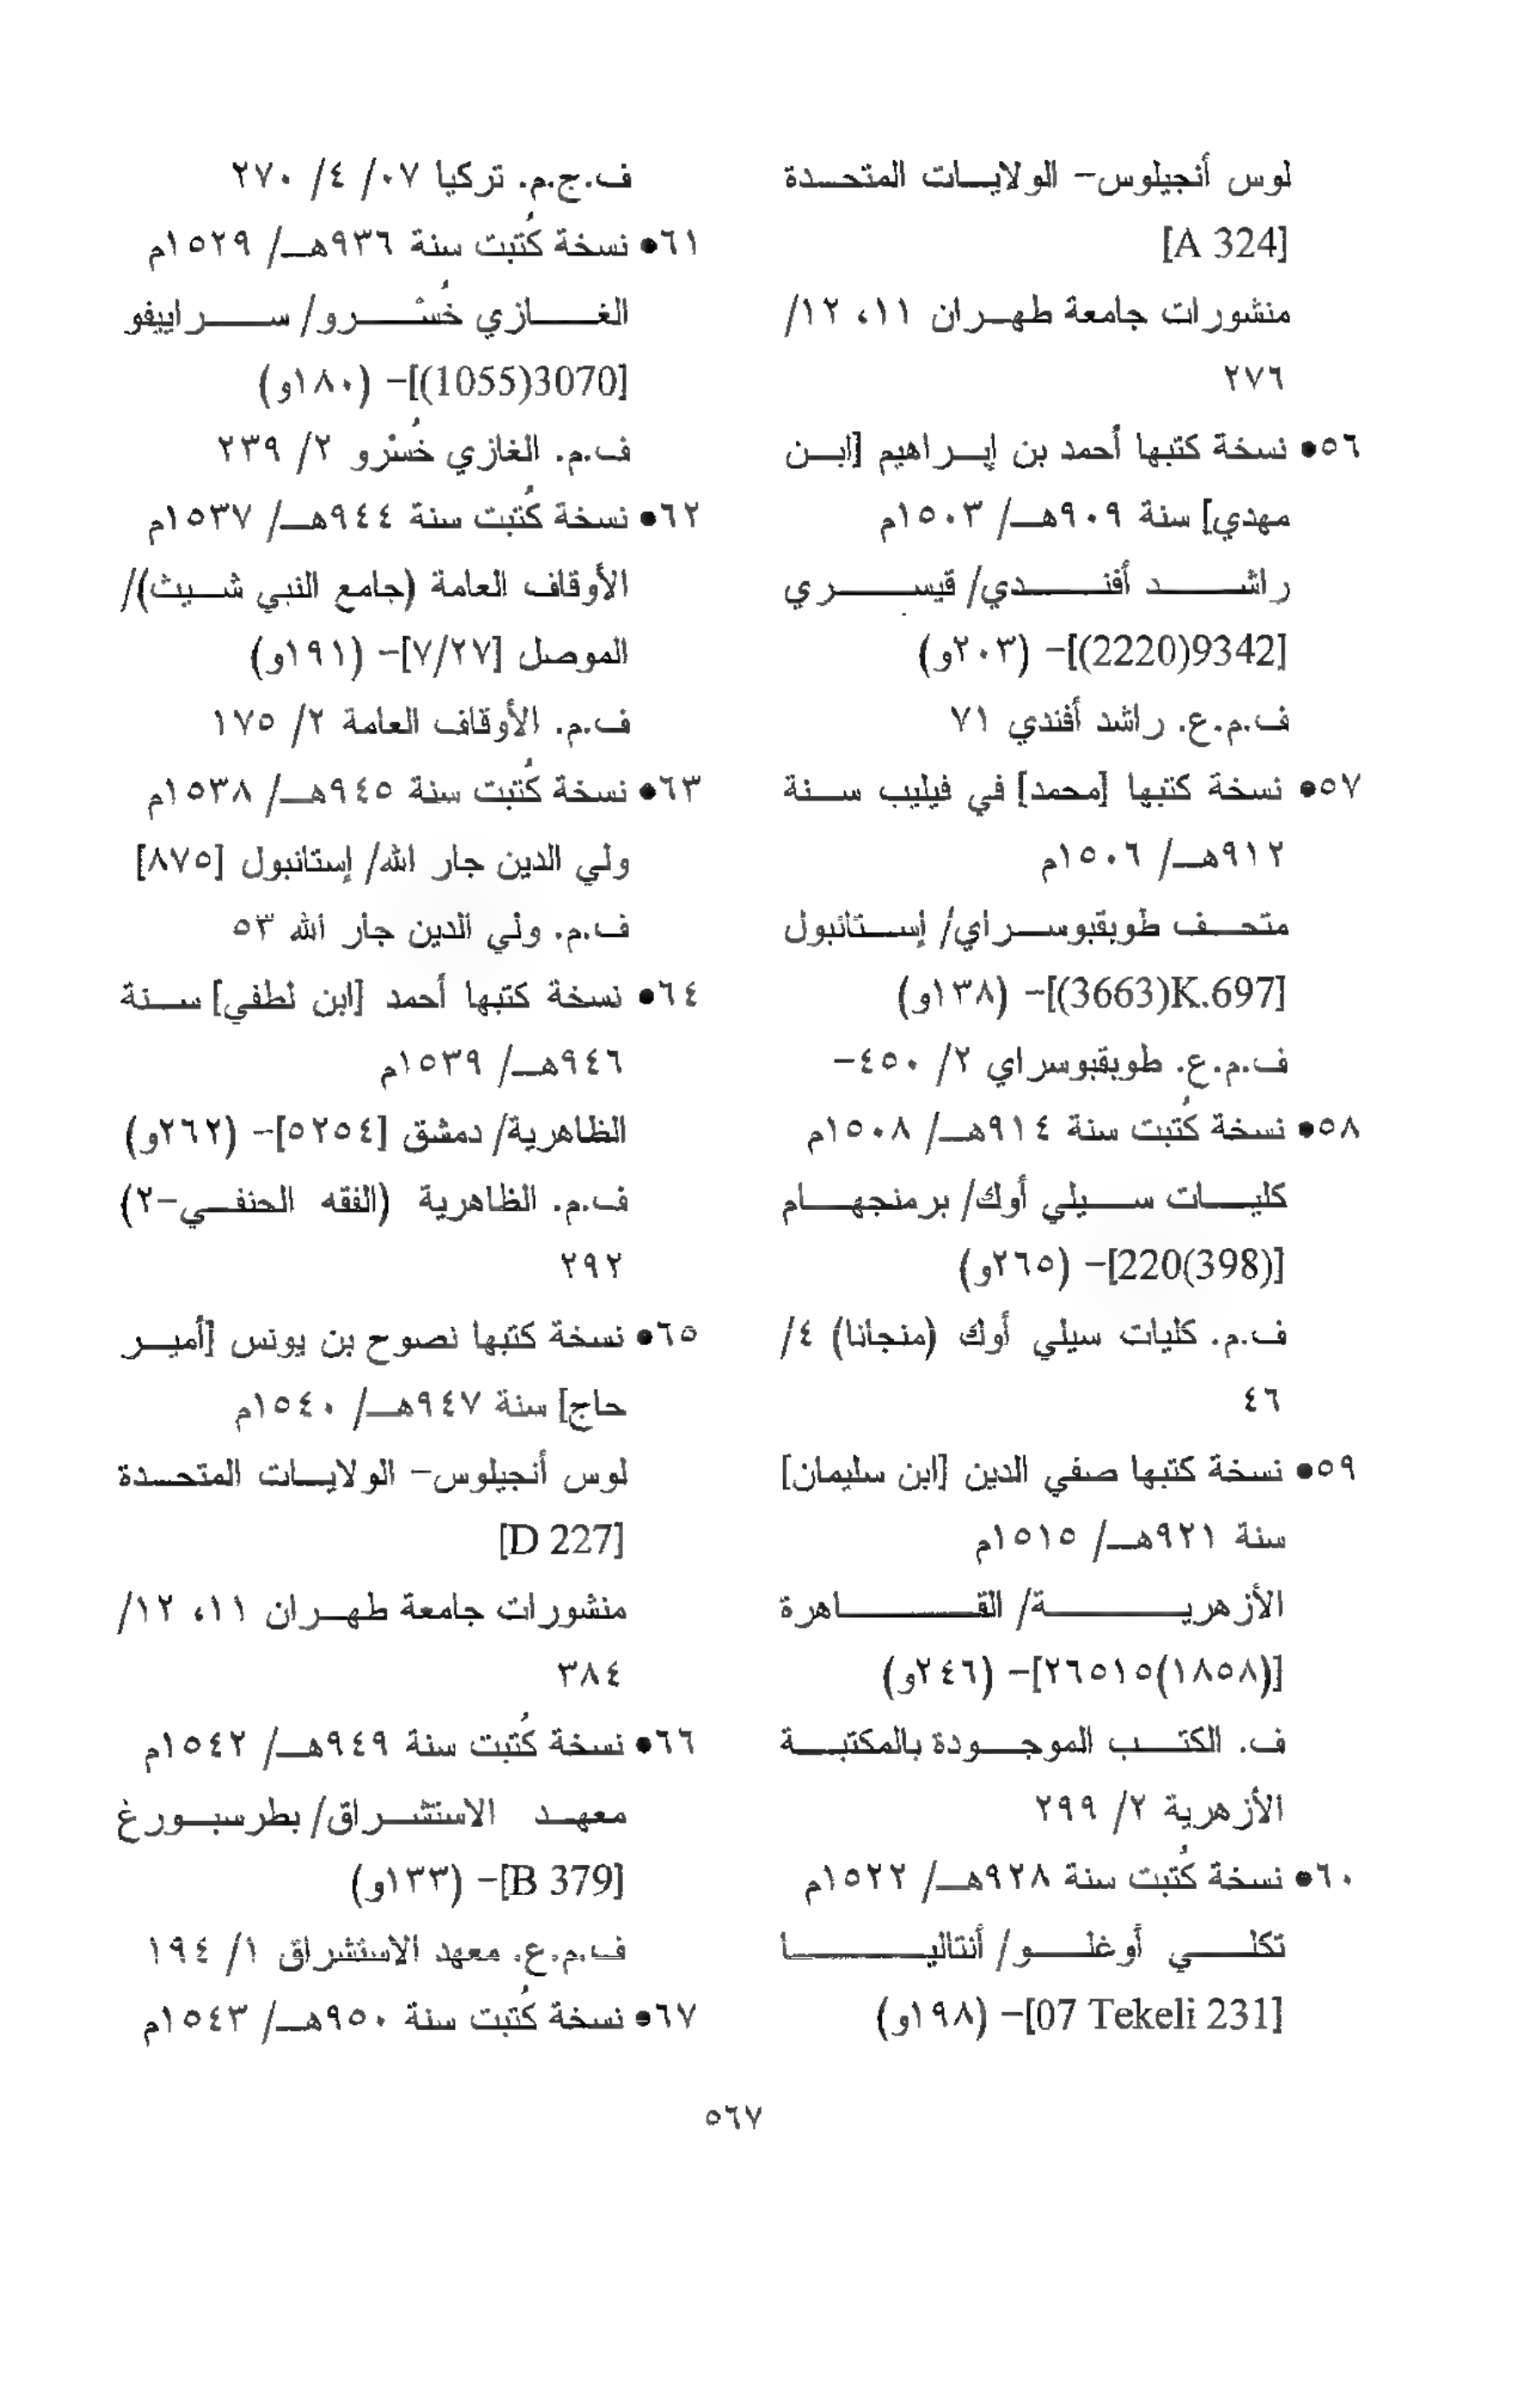 لوس أنجيلوس- الولايات المتحدة
[A 324]
منشورات جامعة طهران ١١، ١٢/
٢٧٦
٥٦• نسخة كتبها أحمد بن إبراهيم [ابن
مهدي] سنة ٩٠٩هـ/ ١٥٠٣م
راشد أفندي/ قيسري
[(2220)9342]- (٢٠٣و)
ف.م.ع. راشد أفندي ٧١
٥٧• نسخة كتبها [محمد] في فيليب سنة
٩١٢هـ/ ١٥٠٦م
متحف طوبقبوسراي/ إستانبول
[(3663)K.697]- (١٣٨و)
ف.م.ع. طوبقبوسراي ٢/ ٤٥٠-
٥٨• نسخة كُتبت سنة ٩١٤هـ/ ١٥٠٨م
كليات سيلي أوك/ برمنجهام
[220(398)]- (٢٦٥و)
ف.م. كليات سيلي أوك (منجانا) ٤/
٤٦
٥٩• نسخة كتبها صفي الدين [ابن سليمان]
سنة ٩٢١هـ/ ١٥١٥م
الأزهرية/ القاهرة
[(١٨٥٨)٢٦٥١٥]- (٢٤٦و)
ف. الكتب الموجودة بالمكتبة
الأزهرية ٢/ ٢٩٩
٦٠• نسخة كُتبت سنة ٩٢٨هـ/ ١٥٢٢م
تكلي أوغلو/ أنتاليا
[07 Tekeli 231]- (١٩٨و)
ف.ج.م. تركيا ٠٧/ ٤/ ٢٧٠
٦١• نسخة كُتبت سنة ٩٣٦هـ/ ١٥٢٩م
الغازي خُسْرو/ سراييفو
[(1055)3070]- (١٨٠و)
ف.م. الغازي خُسْرو ٢/ ٢٣٩
٦٢• نسخة كُتبت سنة ٩٤٤هـ/ ١٥٣٧م
الأوقاف العامة (جامع النبي شيث)/
الموصل [٧/٢٧]- (١٩١و)
ف.م. الأوقاف العامة ٢/ ١٧٥
٦٣• نسخة كُتبت سنة ٩٤٥هـ/ ١٥٣٨م
ولي الدين جار الله/ إستانبول [٨٧٥]
ف.م. ولي الدين جار الله ٥٣
٦٤• نسخة كتبها أحمد [ابن لطفي] سنة
٩٤٦هـ/ ١٥٣٩م
الظاهرية/ دمشق [٥٢٥٤]- (٢٦٢و)
ف.م. الظاهرية (الفقه الحنفي-٢)
٢٩٢
٦٥• نسخة كتبها نصوح بن يونس [أمير
حاج] سنة ٩٤٧هـ/ ١٥٤٠م
لوس أنجيلوس- الولايات المتحدة
[D 227]
منشورات جامعة طهران ١١، ١٢/
٣٨٤
٦٦• نسخة كُتبت سنة ٩٤٩هـ/ ١٥٤٢م
معهد الاستشراق/ بطرسبورغ
[B 379]- (١٣٣و)
ف.م.ع. معهد الاستشراق ١/ ١٩٤
٦٧• نسخة كُتبت سنة ٩٥٠هـ/ ١٥٤٣م
٥٦٧